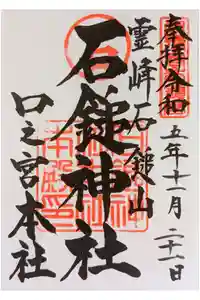 奉拝令和
五年十一月二十一日
霊峰石鎚山
石鎚神社
口之宮本社